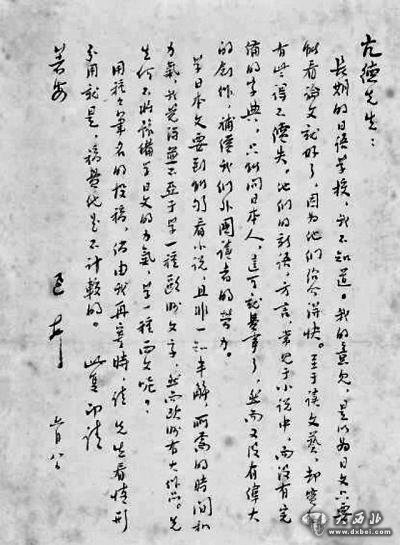 亢德先生：
長期的日語學校，我不知道。我的意見，是以為日文只要
能看論文就好了，因為他們紹介得快。至于讀文藝，却實在
有些得不償失。他們的新語，方言，常見于小說中，而沒有完
備的字典，只能問日本人，這可就費事了，然而又沒有偉大
的創作，補償我們外國讀者的勞力。
學日本文要到能夠看小說，且非一知半解，所需的時間和
力氣，我覺得並不亞于學一種歐洲文字，然而歐洲有大作品。先
生何不將豫備學日文的力氣，學一種西文呢？
用種々筆名的投稿，倘由我再寄時，請先生看情形
分用就是，稿費他是不計較的。 此复 即請
著安
迅 上 六月八日
大西北
www.dxbei.com